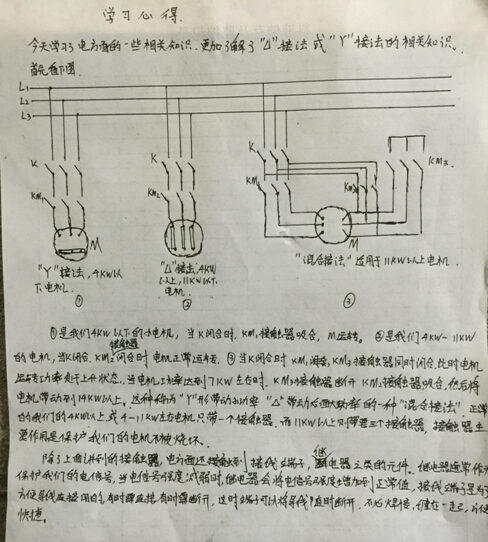 学习心得.
今天学习了电方面的一些相关知识.更加了解了"Δ"接法或"Y"接法的相关知识。
首先看下图.
L1
L2
L3
K
K
K
KM1
KM2
KM1
KM3
KM2
M
M
"Y"接法,4KW以下电机.
"Δ"接法,4KW以上,11KW以下电机.
"混合接法"适用于11KW以上电机.
①
②
③
①是我们4KW以下的小电机,当K闭合时.KM1接触器吸合,M运转.②是我们4KW-11KW
的电机,当K闭合.KM2接触器闭合时电机正常运转.③当K闭合时KM1闭合,KM2接触器同时闭合,此时电机
运转功率处于上升状态.当电机功率达到7KW左右时.KM2接触器断开KM3接触器吸合,然后将
电机带动到14KW以上.这种称为"Y"形带动小功率"Δ"带动后面大功率的一种"混合接法".正常
的我们的4KW以上或4-11KW左右电机只带一个接触器.而11KW以上则带三个接触器.接触器主
要作用是保护我们的电机不被烧坏.
除了上面讲到的接触器,电方面还接触到接线端子,继电器之类的元件.继电器通常作为
保护我们的电信号,当电信号强度减弱时,继电器会将电信号强度增加到正常值,接线端子是为了
方便导线连接用的,有时需连接有时需断开,这时端子可以将导线随时断开,不必焊接,缠在一起,方便
快捷.